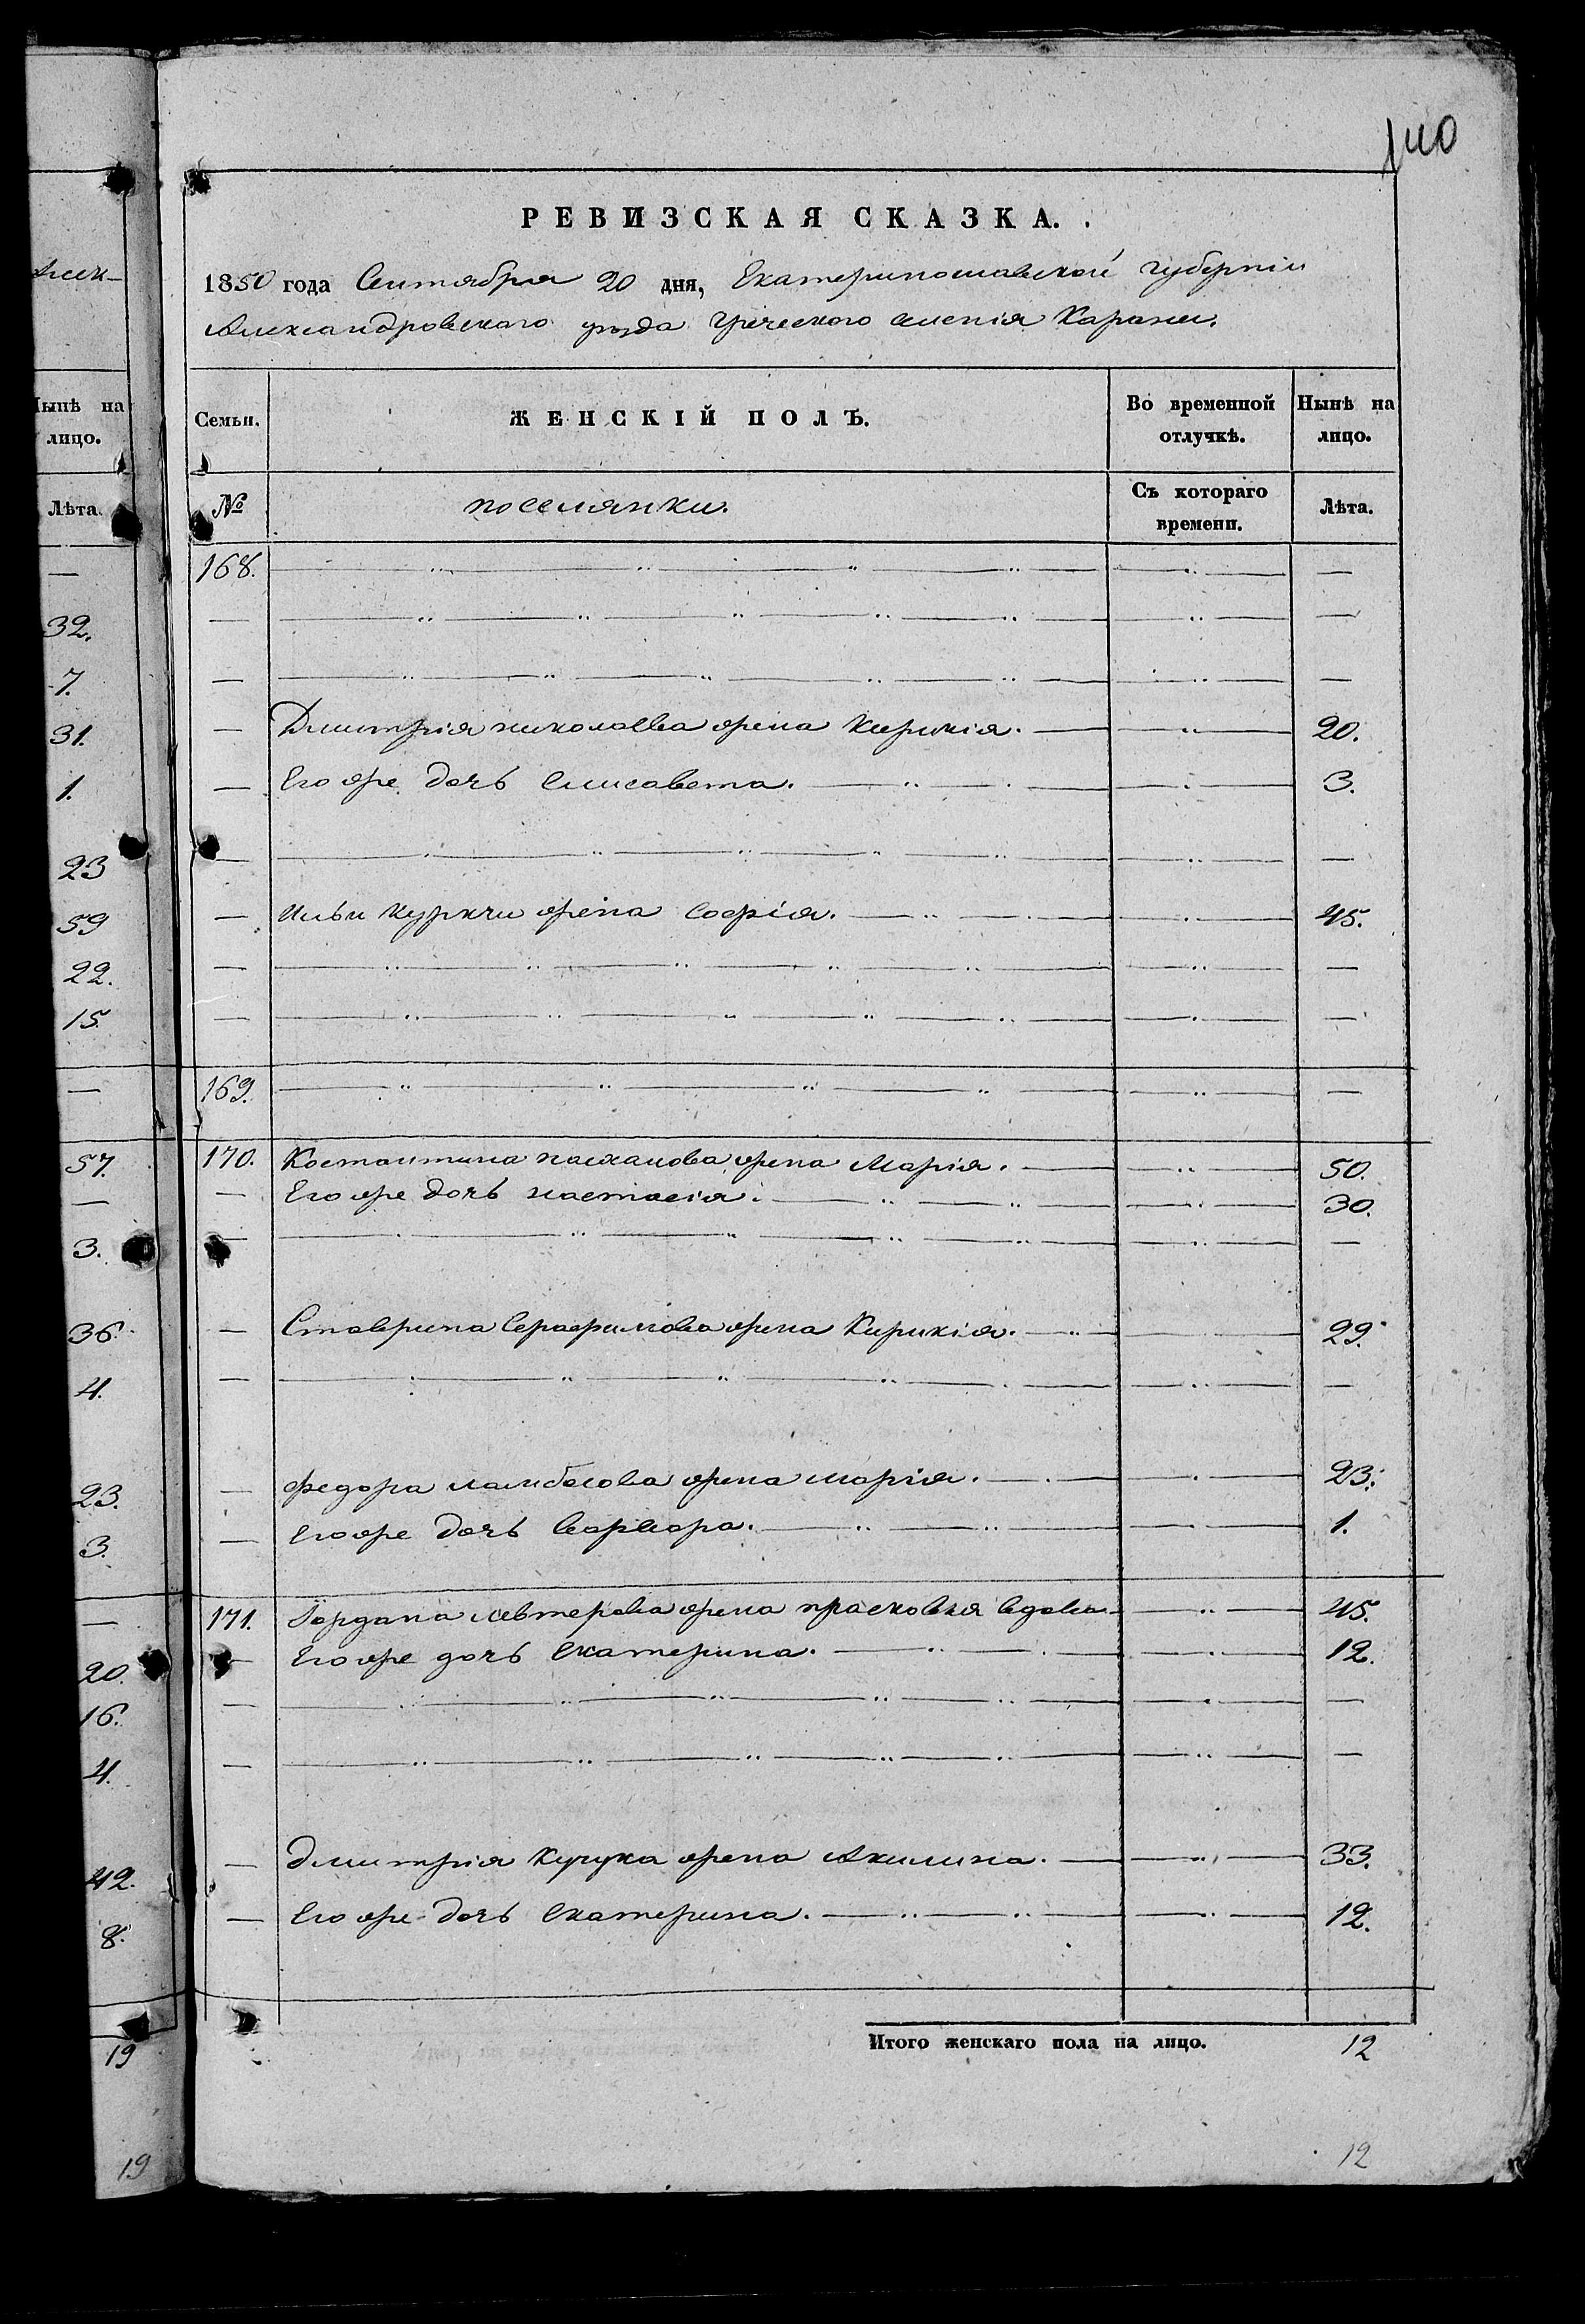 140
РЕВИЗСКАЯ СКАЗКА.
1850 года Сентября 20 дня, Екатеринославской губерніи
Александровскаго уѣзда Греческого селенія Карани.
Алек-
Нынѣ на лицо.
Лѣта.
—
32.
7.
31.
1.
23
59
22.
15.
—
57.
—
3.
36.
4.
23.
3.
—
20.
16.
4.
42.
8.
19
19
Семьи. ЖЕНСКІЙ ПОЛЪ. Во временной отлучкѣ. Нынѣ на лицо.
№ поселянки. Съ котораго времени. Лѣта.
168. — —
— — —
— — —
— Дмитрія николаева жена Кирикія. — 20.
— Его же дочь Елисавета. — 3.
— — —
— Ильи Куркчи жена Софія. — 45.
— — —
— — —
169. — —
170. Костантина пасхалова жена Марія. — 50.
— Его же дочь настасія. — 30.
— — —
— Ставрина Серафимова жена Кирикія. — 29.
— — —
— Федора ламбасова жена марія. — 23.
— Его же дочь Варвара. — 1.
171. Іордана левтерова жена прасковья вдова — 45.
— Его же дочь Екатерина. — 12.
— — —
— — —
— Дмитрія Кучука жена Акилина. — 33.
— Его же дочь Екатерина. — 12.
Итого женскаго пола на лицо. 12
12